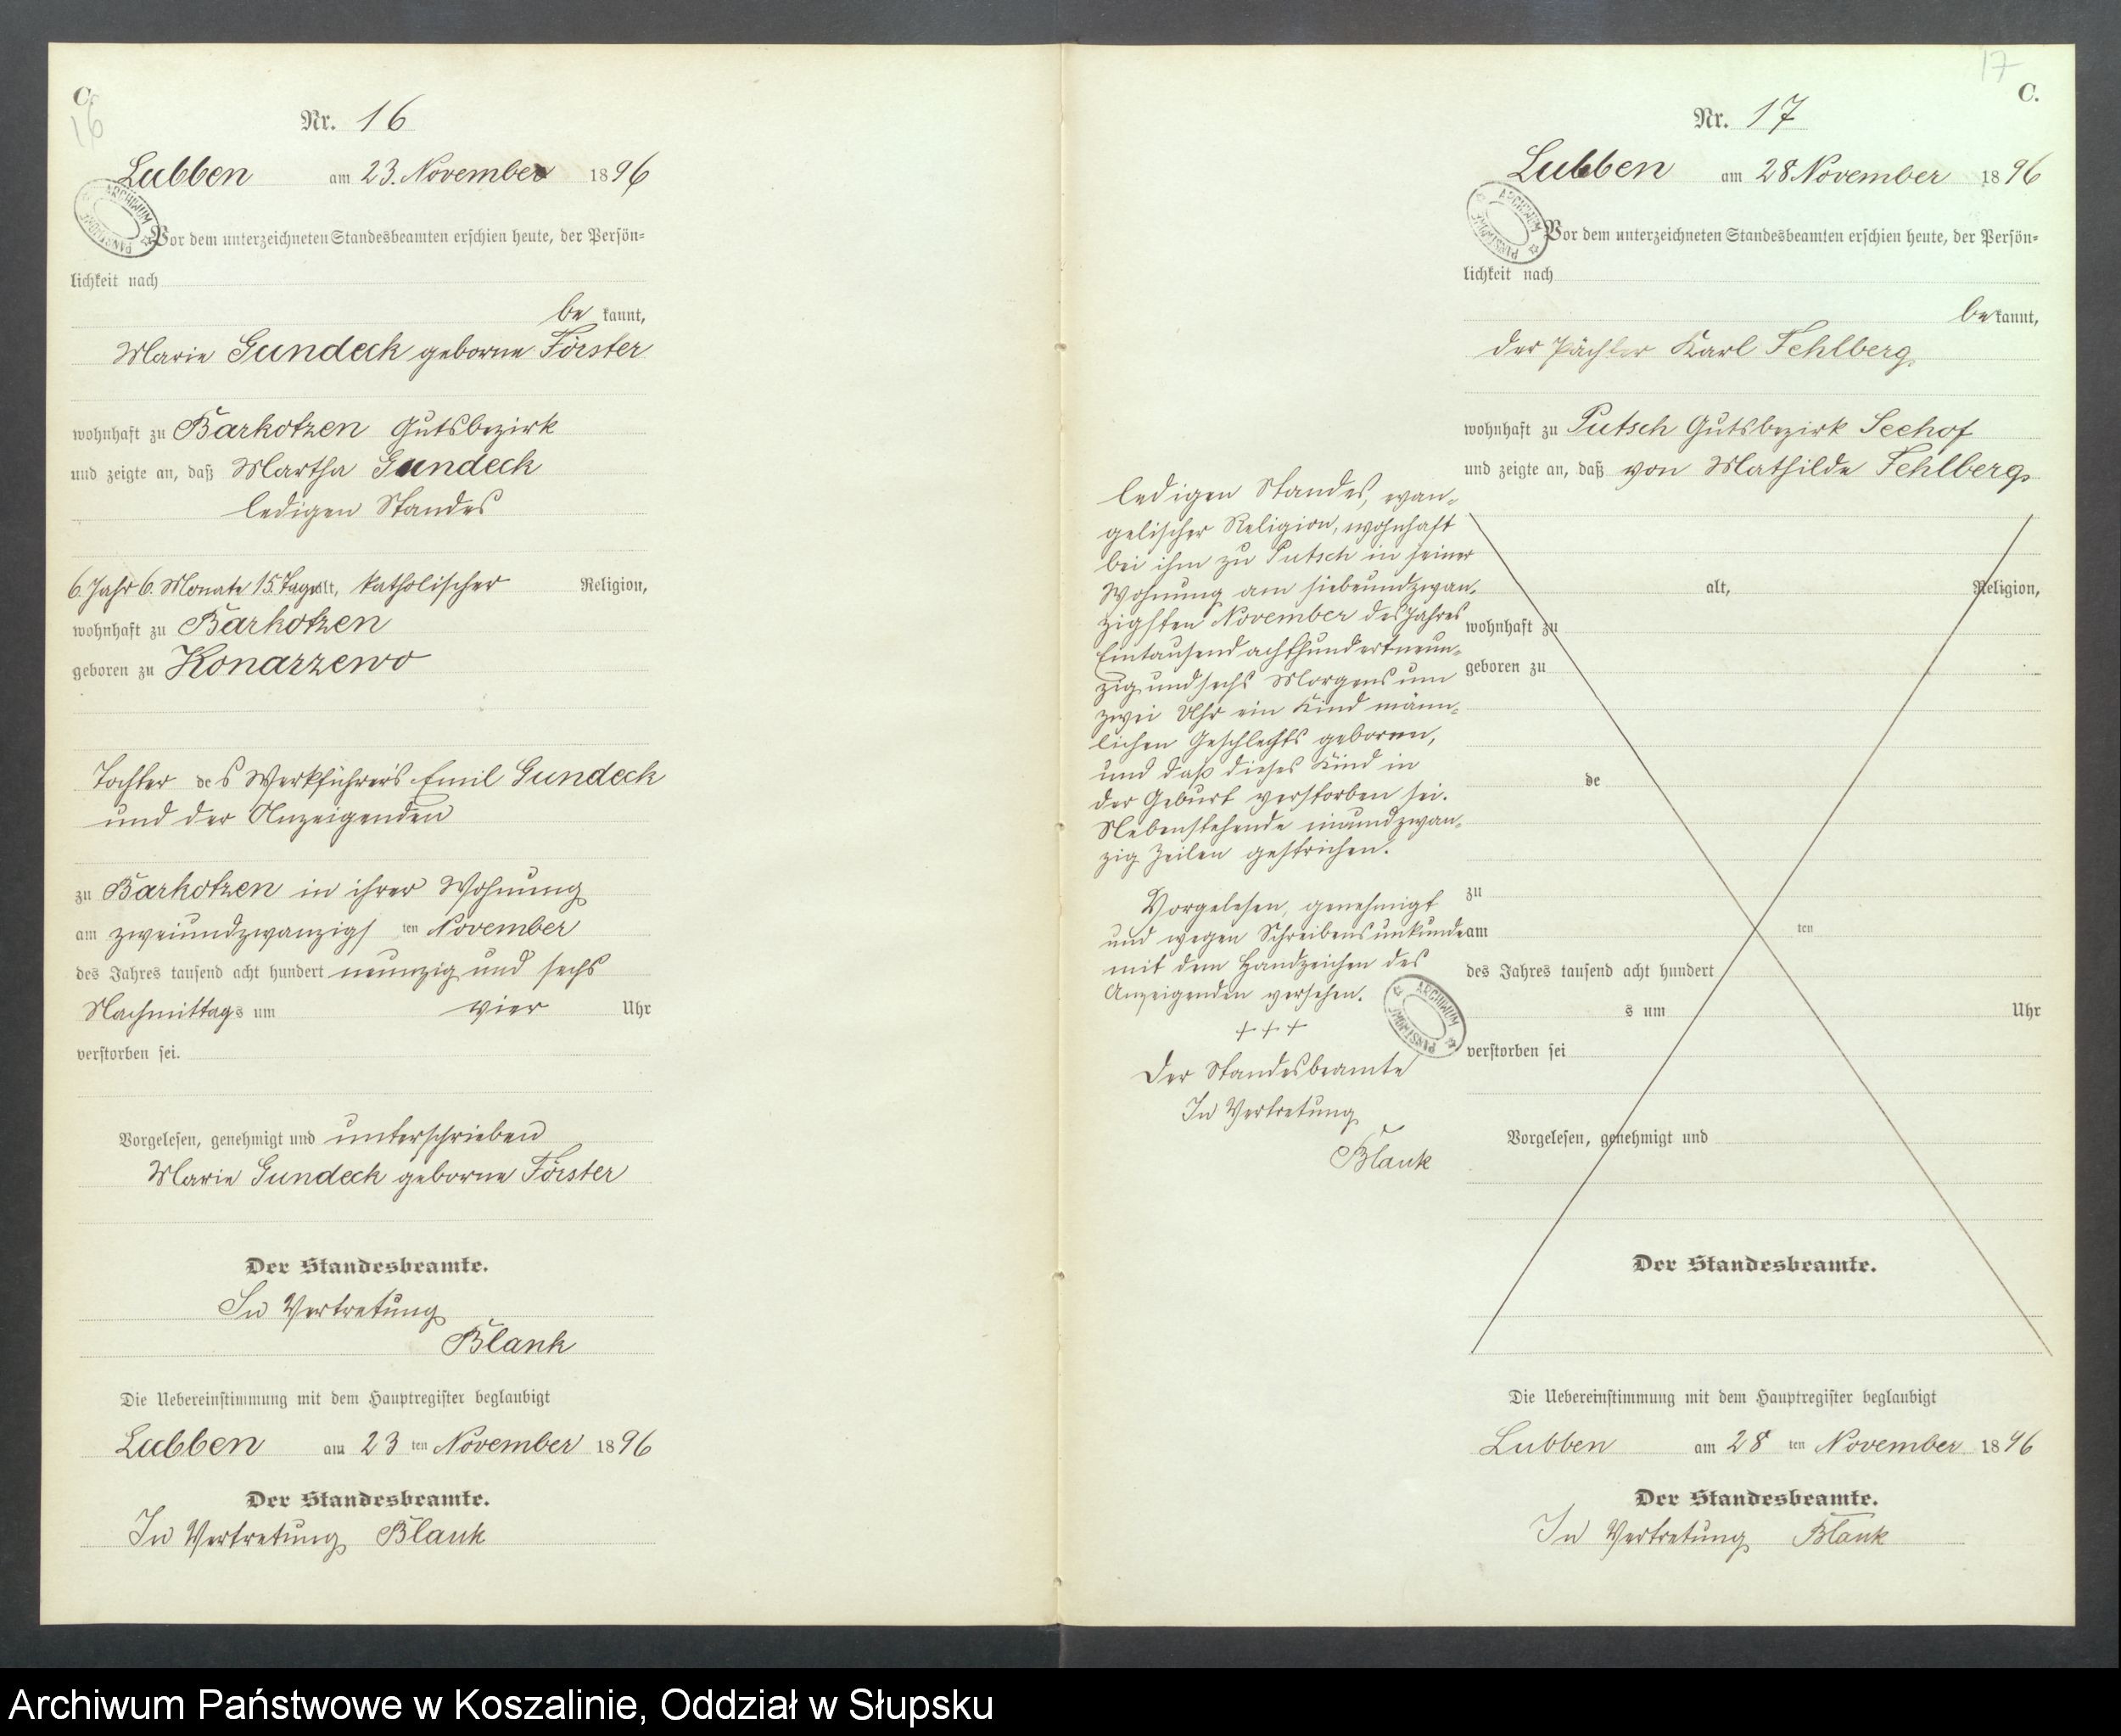 C.
16
Nr. 16
Lubben am 23. November 1896
Vor dem unterzeichneten Standesbeamten erschien heute, der Persön-
lichkeit nach
be kannt,
Marie Gundeck geborne Förster
wohnhaft zu Barkotzen Gutsbezirk
und zeigte an, daß Martha Gundeck
ledigen Standes
6. Jahr 6. Monate 15. Tage alt, katholischer Religion,
wohnhaft zu Barkotzen
geboren zu Konarzewo
Tochter des Werkführers Emil Gundeck
und der Anzeigenden
zu Barkotzen in ihrer Wohnung
am zweiundzwanzigs ten November
des Jahres tausend acht hundert neunzig und sechs
Nachmittags um vier Uhr
verstorben sei.
Vorgelesen, genehmigt und unterschrieben
Marie Gundeck geborne Förster
Der Standesbeamte.
In Vertretung
Blank
Die Uebereinstimmung mit dem Hauptregister beglaubigt
Lubben am 23 ten November 1896
Der Standesbeamte.
In Vertretung Blank
17
C.
Nr. 17
Lubben am 28 November 1896
Vor dem unterzeichneten Standesbeamten erschien heute, der Persön-
lichkeit nach
be kannt,
der Pächter Karl Fehlberg,
wohnhaft zu Putsch Gutsbezirk Seehof
und zeigte an, daß von Mathilde Fehlberg,
ledigen Standes, evan-
gelischer Religion, wohnhaft
bei ihm zu Putsch in seiner
Wohnung am siebenundzwan-
zigsten November des Jahres
Eintausend achthundert neun-
zig und sechs Morgens um
zwei Uhr ein Kind männ-
lichen Geschlechts geboren,
und daß dieses Kind in
der Geburt verstorben sei.
Nebenstehende einundzwan-
zig Zeilen gestrichen.
Vorgelesen, genehmigt
und wegen Schreibensunkunde
mit dem Handzeichen des
Anzeigenden versehen.
+++
Der Standesbeamte
In Vertretung
Blank
alt, Religion,
wohnhaft zu
geboren zu
de
zu
am ten
des Jahres tausend acht hundert
s um Uhr
verstorben sei
Vorgelesen, genehmigt und
Der Standesbeamte.
Die Uebereinstimmung mit dem Hauptregister beglaubigt
Lubben am 28 ten November 1896
Der Standesbeamte.
In Vertretung Blank
Archiwum Państwowe w Koszalinie, Oddział w Słupsku